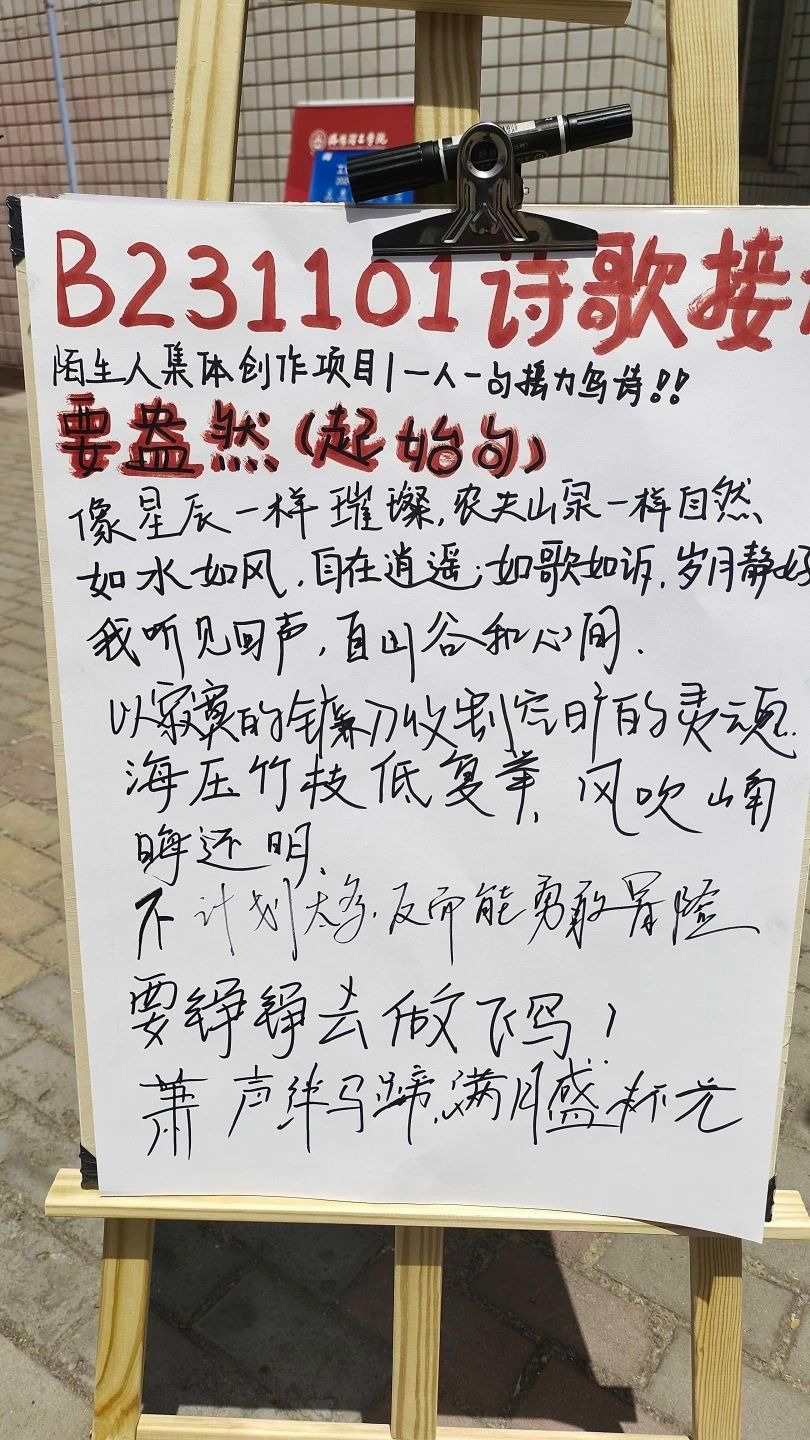 B231101诗歌接
陌生人集体创作项目|一人一句接力写诗!!
要盎然(起始句)
像星辰一样璀璨,农夫山泉一样自然
如水如风,自在逍遥;如歌如诉,岁月静好
我听见回声,自山谷和心间.
以寂寞的镰刀收割空旷的灵魂.
海压竹枝低复举,风吹山角
晦还明.
不计划太多.反而能勇敢冒险
要铮铮去做飞鸟!
萧声绊马蹄,满月盛杯光